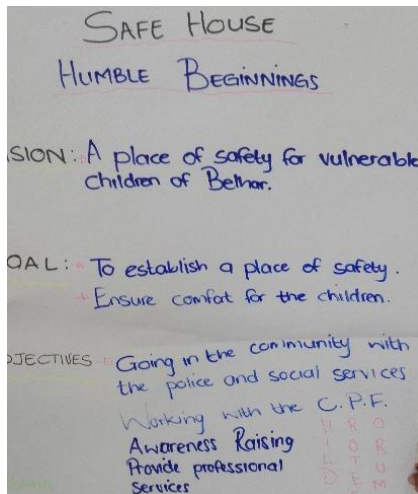 SAFE HOUSE
HUMBLE BEGINNINGS
SION: A place of safety for vulnerable
children of Belhar.
OAL: To establish a place of safety.
Ensure comfat for the children.
JECTIVES Going in the community with
the police and social services
Working with the C.P.F.
Awareness Raising
Provide professional
services